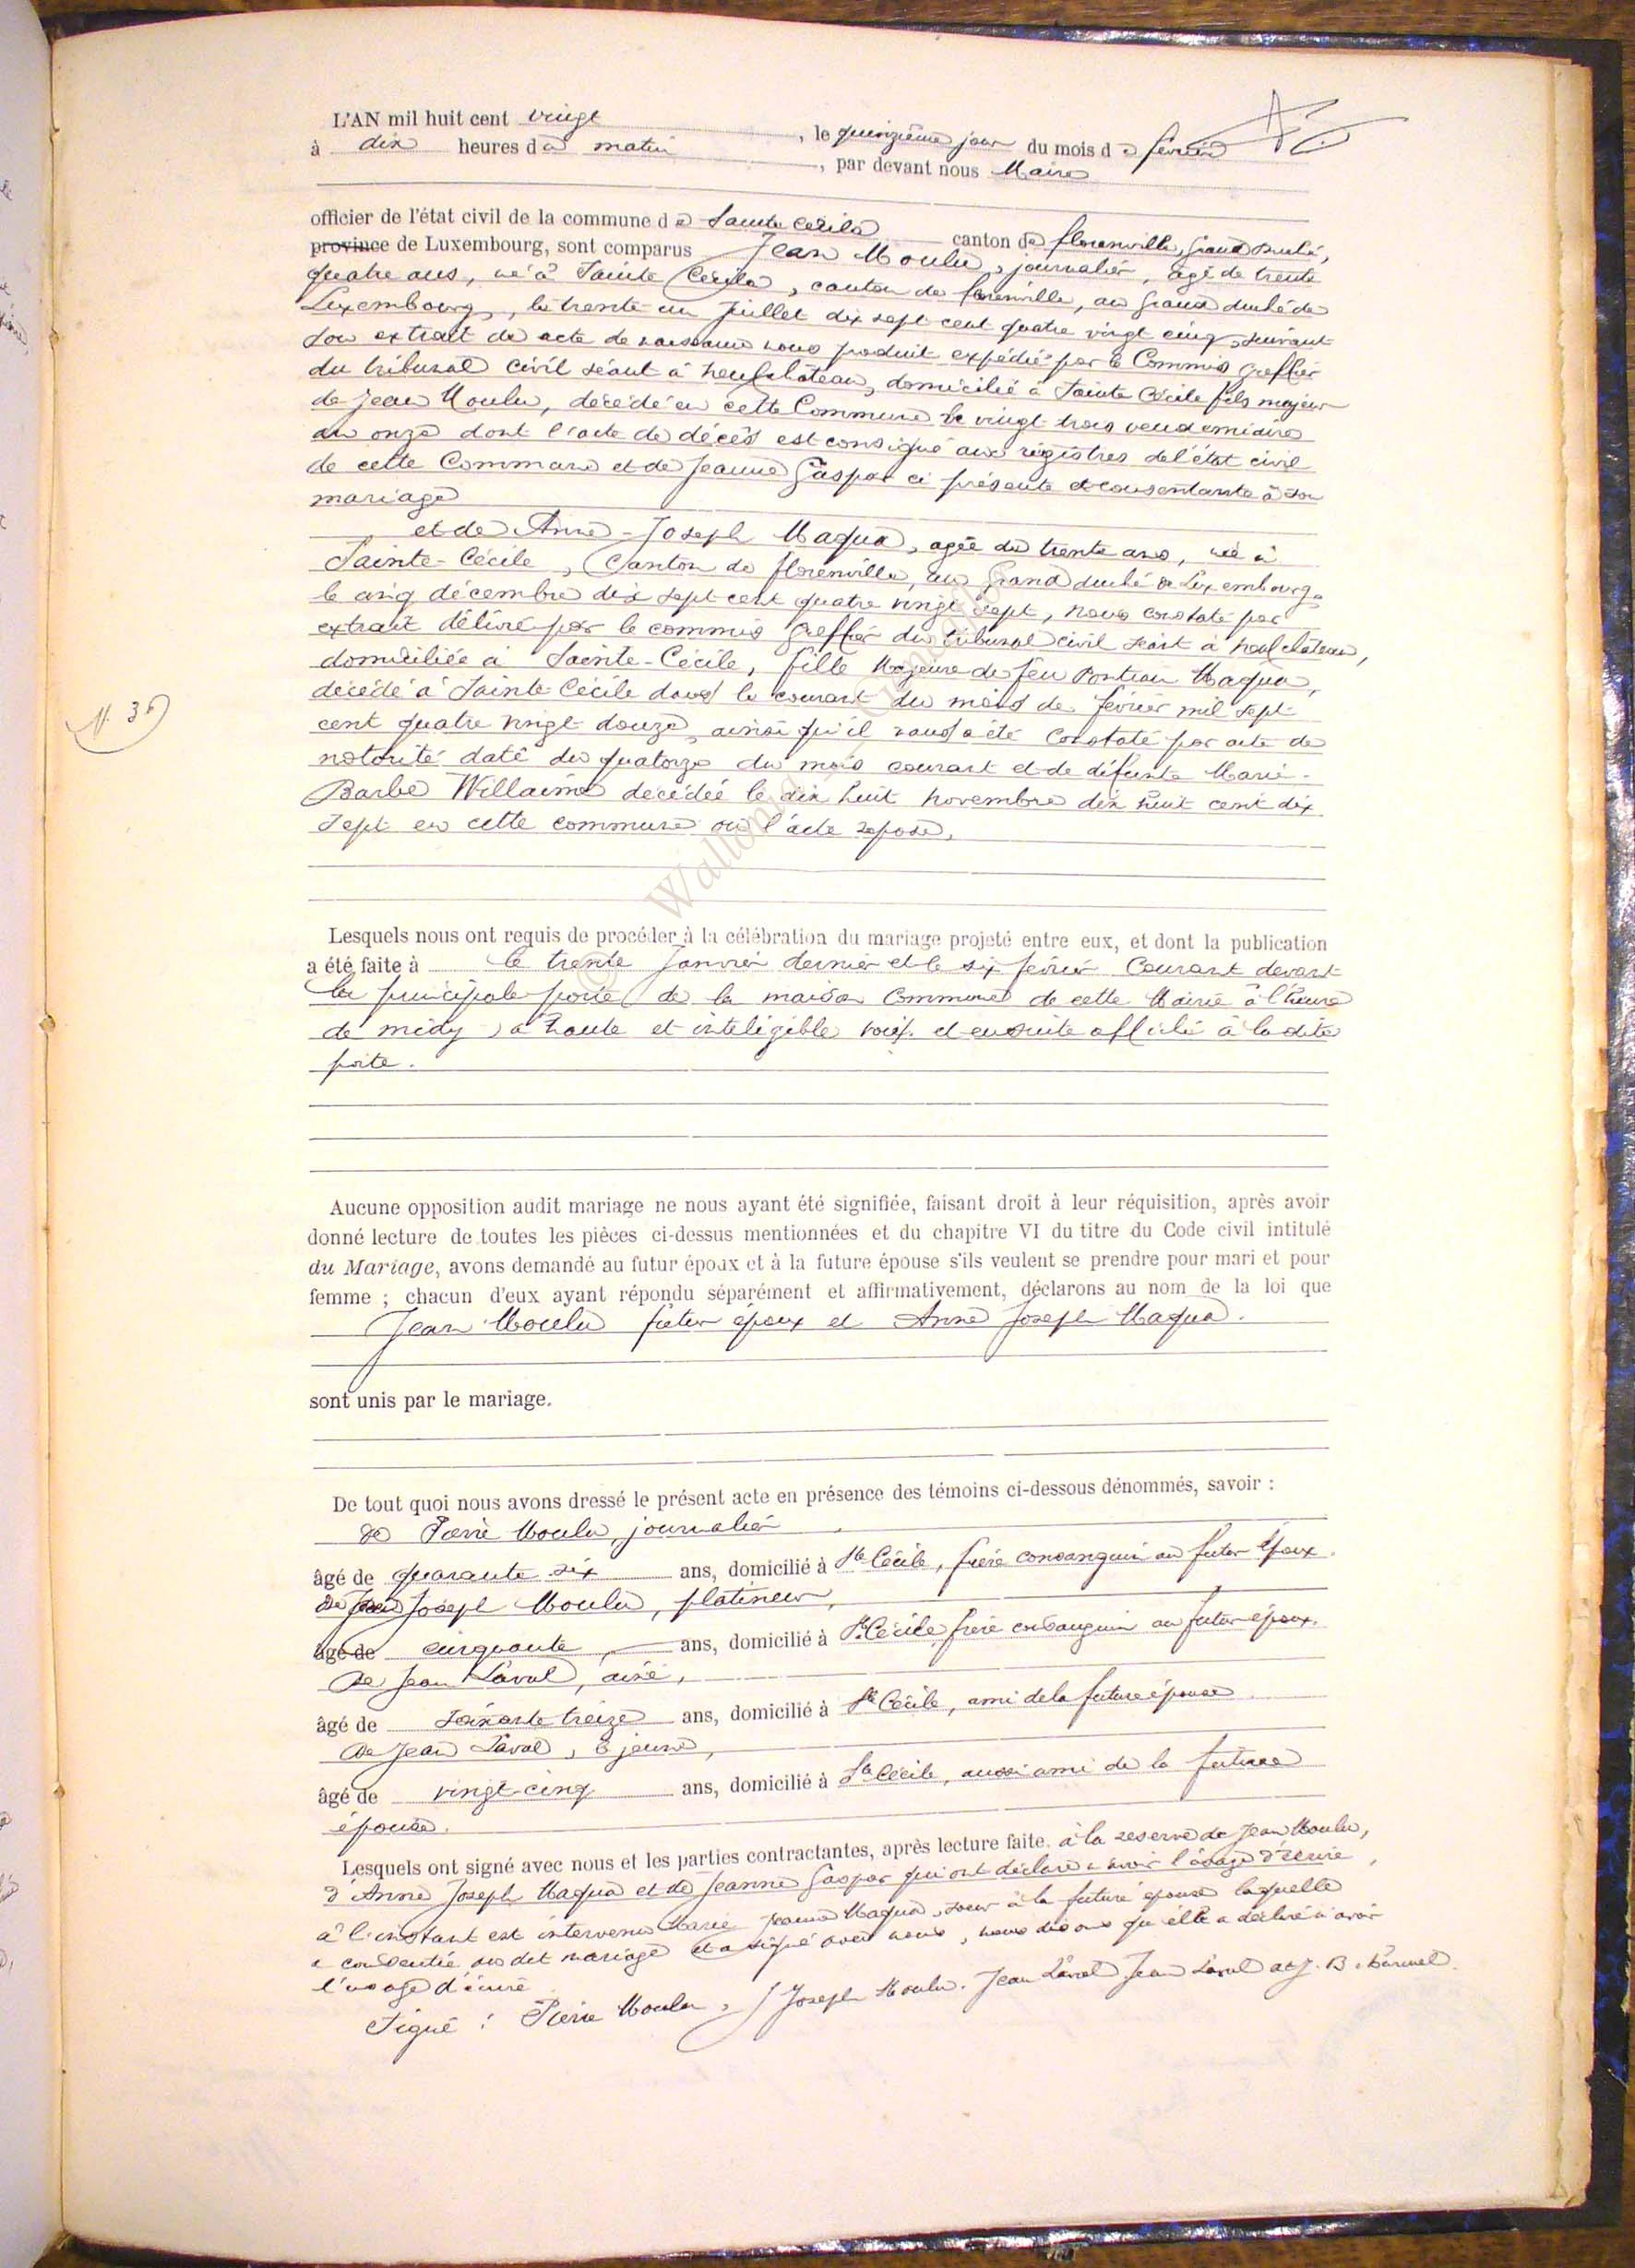 L'AN mil huit cent vingt, le quinzième jour du mois de février
à dix heures du matin, par devant nous Maire
officier de l'état civil de la commune de Sainte Cécile canton de florenville, grand duché,
province de Luxembourg, sont comparus Jean Moulu, journalier, âgé de trente
quatre ans, né à Sainte Cécile, canton de florenville, au grand duché de
Luxembourg, le trente un juillet dix sept cent quatre vingt cinq, suivant
son extrait de acte de naissance nous produit expédié par le Commis greffier
du tribunal civil séant à neufchâteau, domicilié à Sainte Cécile fils majeur
de Jean Moulu, décédé en cette Commune le vingt trois vendemiaire
an onze dont l'acte de décès est consigné aux régistres de l'état civil
de cette Commune et de Jeanne Gaspar ci présente et consentante à son
mariage
et de Anne-Joseph Maqua, agée de trente ans, née à
Sainte-Cécile, Canton de florenville, au Grand duché de Luxembourg,
le cinq décembre dix sept cent quatre vingt sept, nous constaté par
extrait délivré par le commis Greffier du tribunal civil séant à neufchâteau,
domiciliée à Sainte-Cécile, fille Majeure de feu Ponтian Maqua,
décédé à Sainte Cécile dans le courant du mois de février mil sept
cent quatre vingt douze, ainsi qu'il nous a été constaté par acte de
notorité daté du quatorze du mois courant et de défunte Marie-
Barbe Willaime décédée le dix huit novembre dix huit cent dix
sept en cette commune où l'acte repose,
N. 36
Wallonia
Lesquels nous ont requis de procéder à la célébration du mariage projeté entre eux, et dont la publication
a été faite à le trente Janvier dernier et le six février Courant devant
la principale porte de la maison Commune de cette Mairie à l'heure
de midy, à haute et inteligible voix. et ensuite affiché à la dite
porte.
Aucune opposition audit mariage ne nous ayant été signifiée, faisant droit à leur réquisition, après avoir
donné lecture de toutes les pièces ci-dessus mentionnées et du chapitre VI du titre du Code civil intitulé
du Mariage, avons demandé au futur époux et à la future épouse s'ils veulent se prendre pour mari et pour
femme ; chacun d'eux ayant répondu séparément et affirmativement, déclarons au nom de la loi que
Jean Moulu futur époux et Anne Joseph Maqua.
sont unis par le mariage.
De tout quoi nous avons dressé le présent acte en présence des témoins ci-dessous dénommés, savoir :
de Pierre Moulu, journalier
âgé de quarante six ans, domicilié à Ste Cécile, frère consanguin au futur époux.
de Joseph Moulu, platineur,
âgé de cinquante, ans, domicilié à Ste Cécile frère consanguin au futur époux.
de Jean Laval, ainé,
âgé de soixante treize ans, domicilié à Ste Cécile, ami de la future épouse
de Jean Laval, le jeune,
âgé de vingt-cinq ans, domicilié à Ste Cécile, aussi ami de la future
épouse.
Lesquels ont signé avec nous et les parties contractantes, après lecture faite, à la reserve de Jean Moulu,
d'Anne Joseph Maqua et de Jeanne Gaspar qui ont déclaré n'avoir l'usage d'écrire,
à l'instant est intervenu Marie Jeanne Maqua, soeur à la future épouse laquelle
a consentie au dit mariage et a signé avec nous, nous disons qu'elle a déclaré n'avoir
l'usage d'écrire
Signé : Pierre Moulu, J Joseph Moulu. Jean Laval Jean Laval J. B.